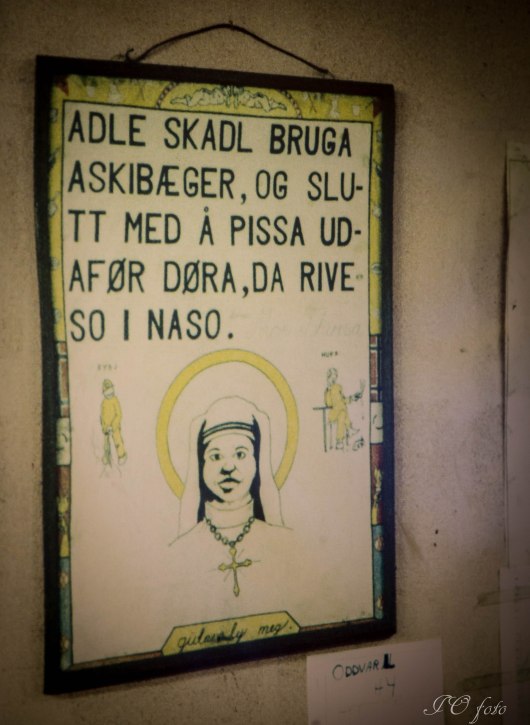 ADLE SKADL BRUGA
ASKIBÆGER, OG SLU-
TT MED Å PISSA UD-
AFØR DØRA, DA RIVE-
SO I NASO.
meg.
ODDVAR L
44
IO foto